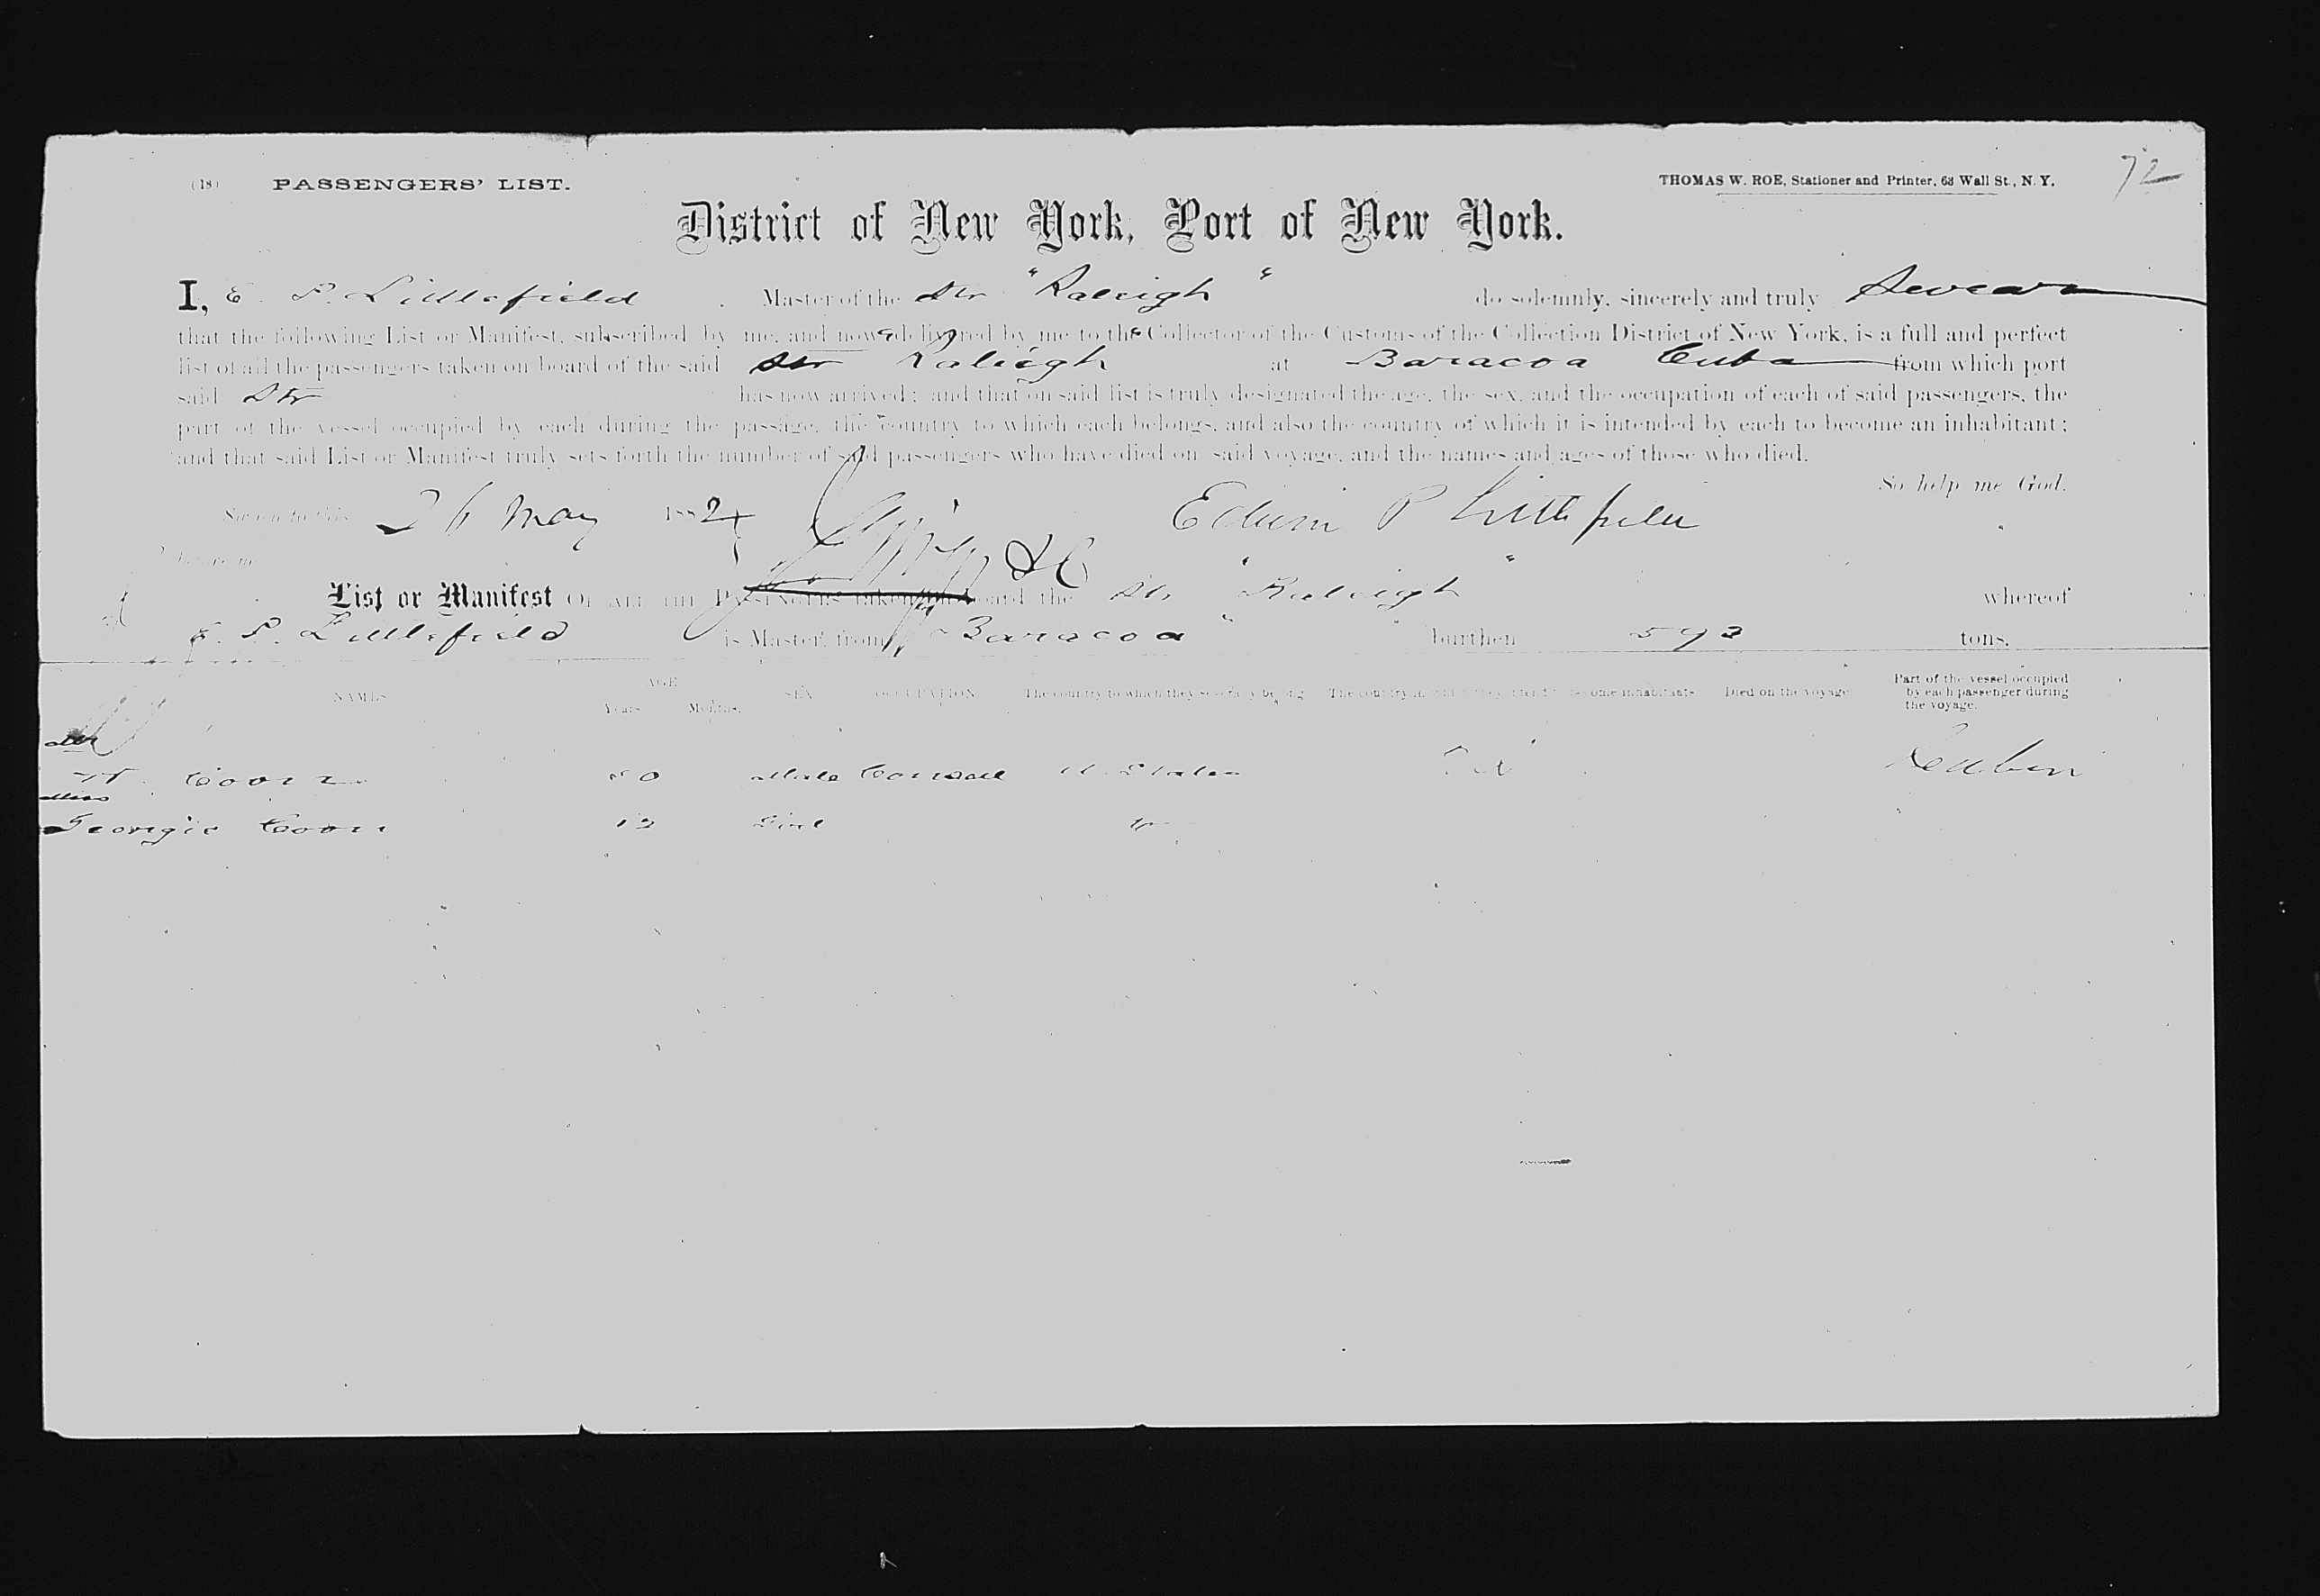 (18) PASSENGERS' LIST.
THOMAS W. ROE, Stationer and Printer, 63 Wall St., N. Y.
72
District of New York, Port of New York.
I, E. P. Littlefield Master of the Str "Raleigh" do solemnly, sincerely and truly Swear
that the following List or Manifest, subscribed by me, and now delivered by me to the Collector of the Customs of the Collection District of New York, is a full and perfect
list of all the passengers taken on board of the said Str Raleigh at Baracoa Cuba from which port
said Str has now arrived; and that on said list is truly designated the age, the sex, and the occupation of each of said passengers, the
part of the vessel occupied by each during the passage, the country to which each belongs, and also the country of which it is intended by each to become an inhabitant;
and that said List or Manifest truly sets forth the number of said passengers who have died on said voyage, and the names and ages of those who died.
So help me God.
Sworn to this 26 May 1884 Edwin P Littlefield
Before me
List or Manifest OF ALL THE PASSENGERS taken on board the Str "Raleigh" whereof
E. P. Littlefield is Master, from Baracoa burthen 593 tons.
NAMES
AGE
Years Months.
SEX
OCCUPATION
The country to which they severally belong
The country in which they intend to become inhabitants
Died on the voyage
Part of the vessel occupied
by each passenger during
the voyage.
Coon 50 Male Consul U. States Cabin
Miss
Georgie Coon 13 Girl